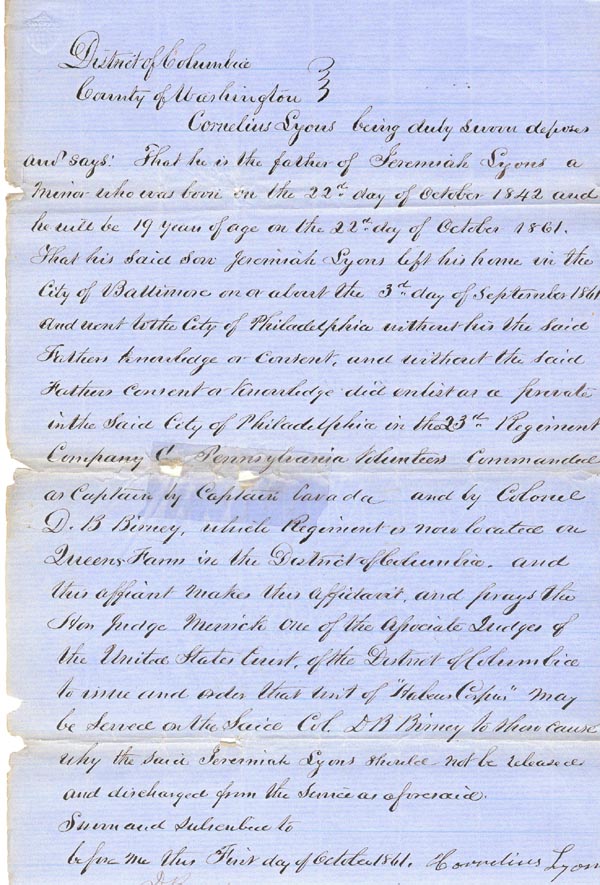 District of Columbia
County of Washington
Cornelius Lyons being duly sworn deposes
and says: That he is the father of Jeremiah Lyons a
Minor who was born on the 22nd day of October 1842 and
he will be 19 years of age on the 22d day of October 1861.
That his said son Jeremiah Lyons left his home in the
City of Baltimore on or about the 3rd day of September 1861
and went to the City of Philadelphia without his the said
Fathers knowledge or consent, and without the said
Fathers consent or knowledge did enlist as a private
in the said City of Philadelphia in the 23rd Regiment
Company C Pennsylvania Volunteers Commanded
as Captain by Captain Cavada and by Colonel
D. B Birney, which Regiment is now located on
Queens Farm in the District of Columbia. and
this affiant makes this affidavit, and prays the
Hon Judge Merrick one of the Associate Judges of
the United States Court, of the District of Columbia
to issue and order that writ of "Habeus Corpus" may
be served on the said Col. D B Birney to show cause
why the said Jeremiah Lyons should not be released
and discharged from the service as aforesaid.
Sworn and subscribe to
before me this First day of October 1861. Kornelius Lyon